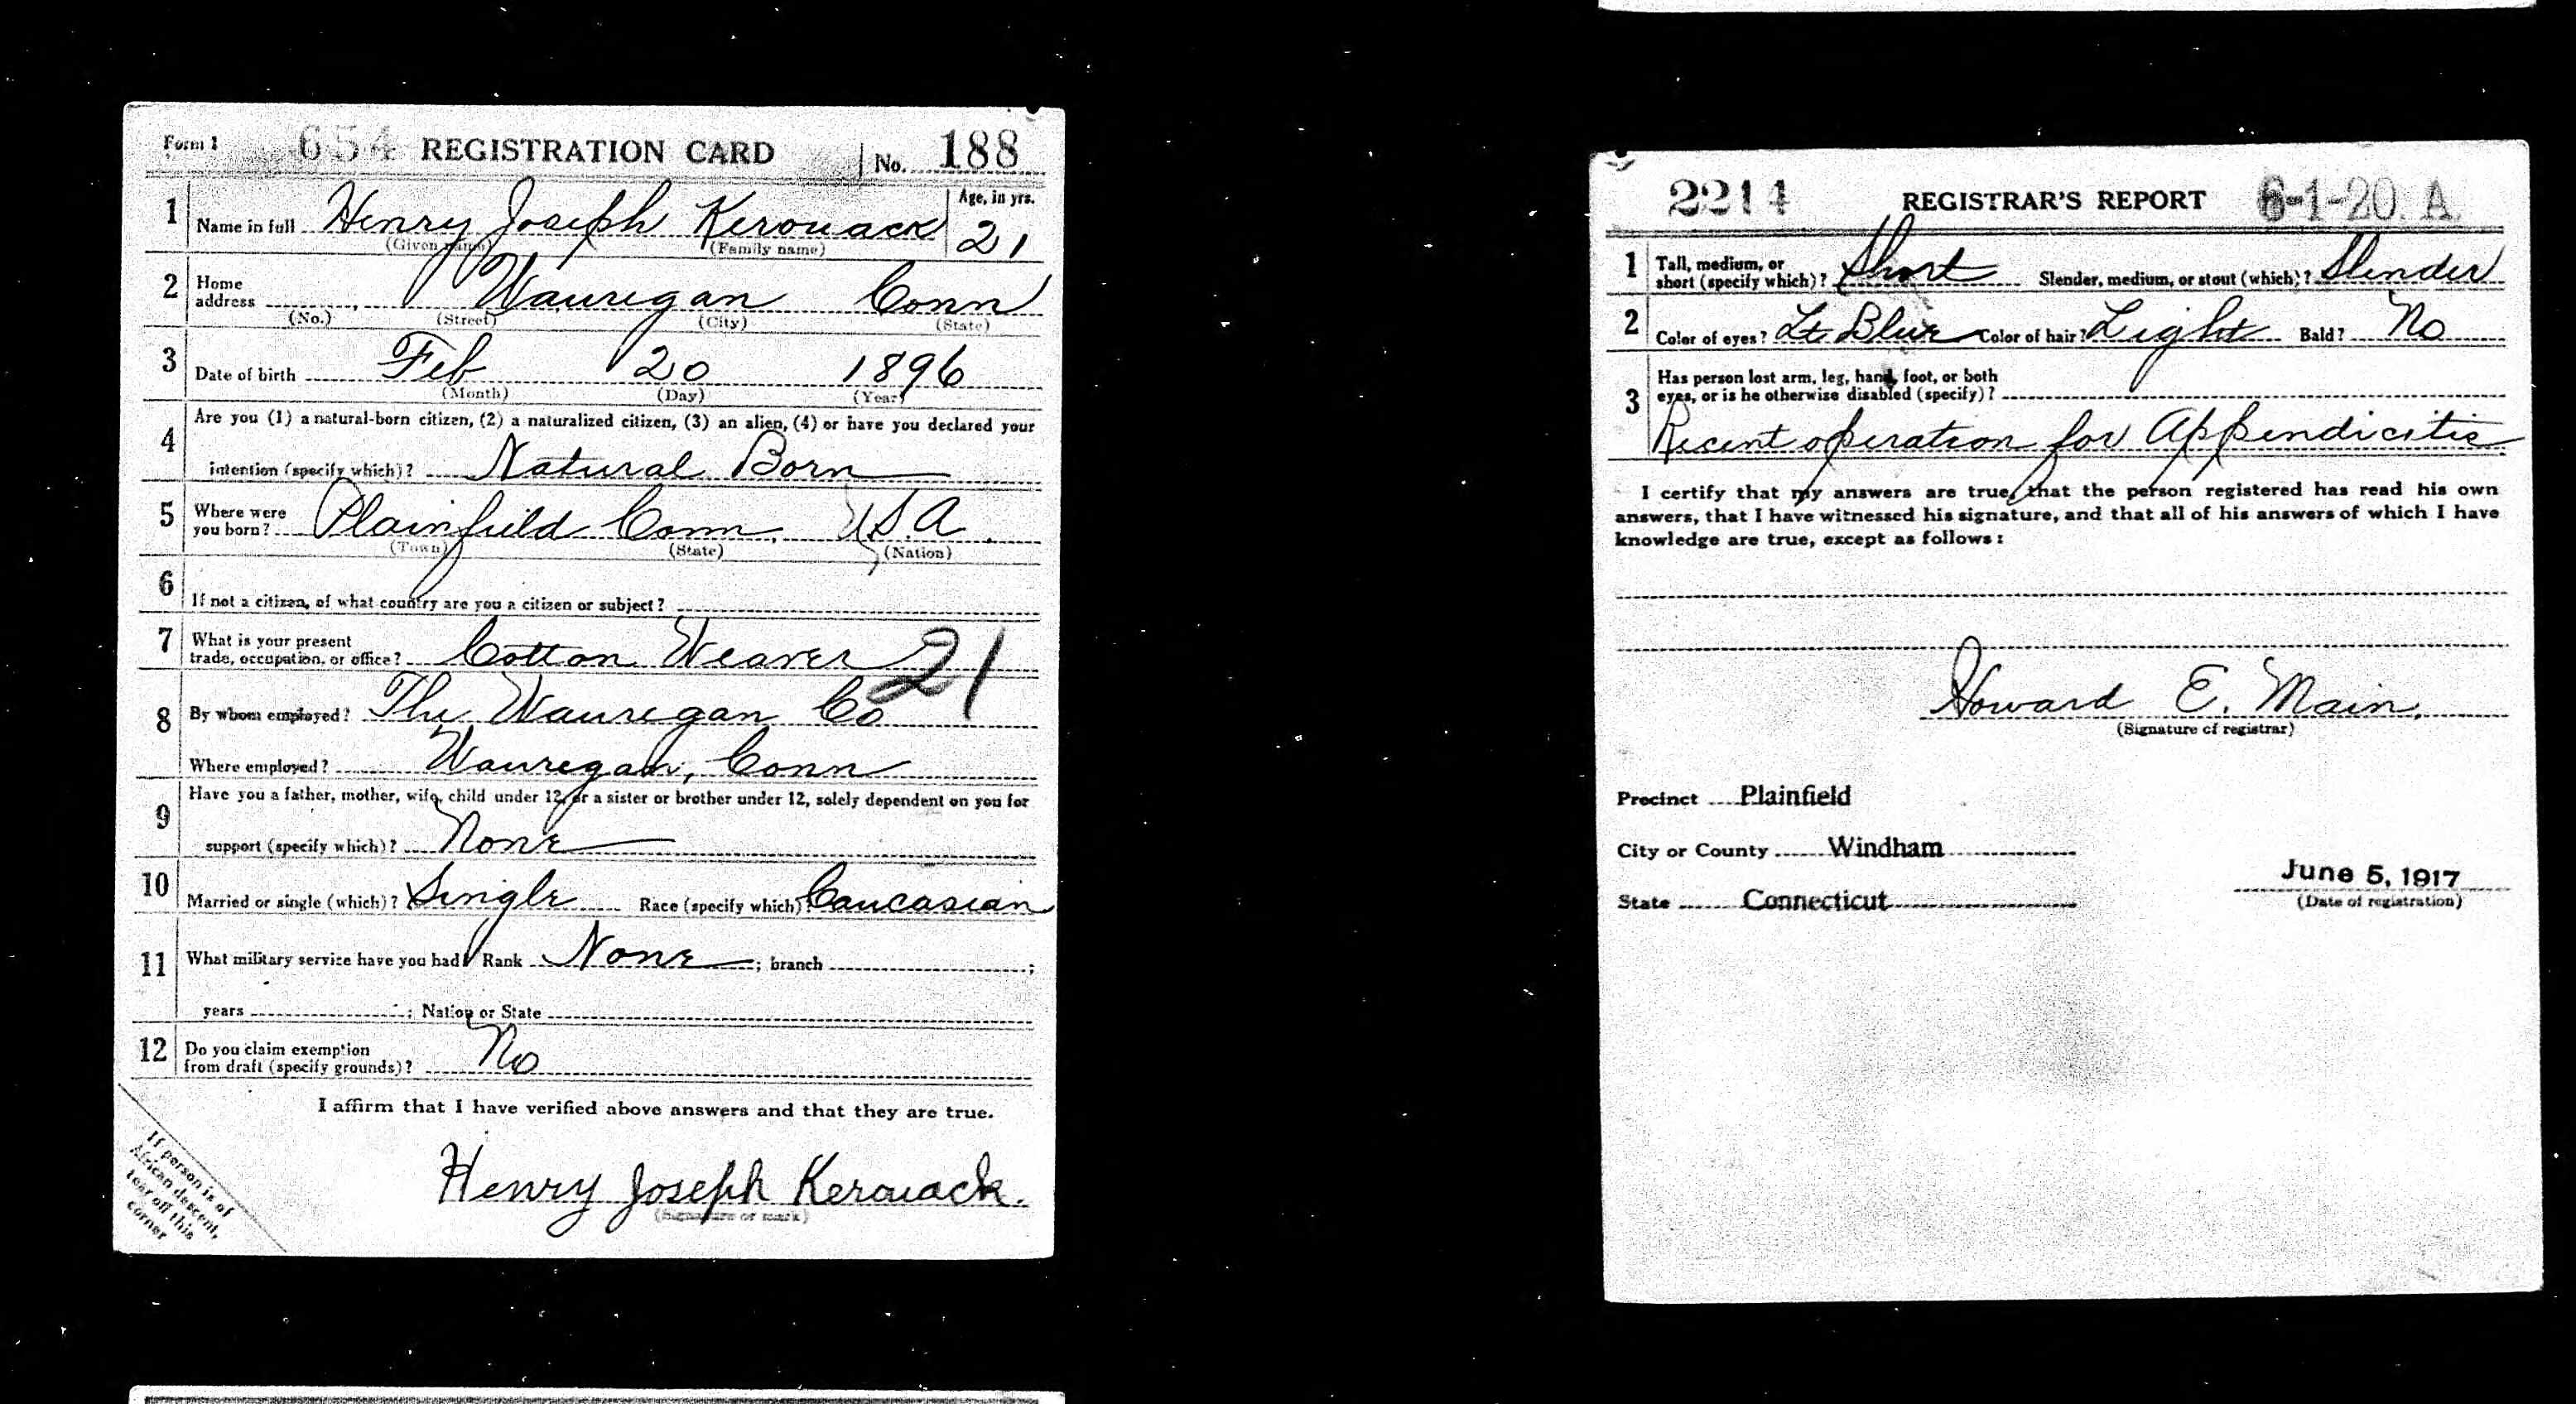 Form 1 654 REGISTRATION CARD No. 188
1 Name in full Henry Joseph Kerouack Age, in yrs. 21
(Given name) (Family name)
2 Home address Wauregan Conn
(No.) (Street) (City) (State)
3 Date of birth Feb 20 1896
(Month) (Day) (Year)
4 Are you (1) a natural-born citizen, (2) a naturalized citizen, (3) an alien, (4) or have you declared your
intention (specify which)? Natural Born
5 Where were you born? Plainfield Conn. U.S.A.
(Town) (State) (Nation)
6 If not a citizen, of what country are you a citizen or subject?
7 What is your present trade, occupation, or office? Cotton Weaver 21
8 By whom employed? The Wauregan Co
Where employed? Wauregan, Conn
9 Have you a father, mother, wife, child under 12, or a sister or brother under 12, solely dependent on you for
support (specify which)? None
10 Married or single (which)? Single Race (specify which)? Caucasian
11 What military service have you had? Rank None ; branch ;
years ; Nation or State
12 Do you claim exemption from draft (specify grounds)? No
I affirm that I have verified above answers and that they are true.
Henry Joseph Kerouack.
(Signature or mark)
If person is of
African descent,
tear off this
corner
2214 REGISTRAR'S REPORT 6-1-20. A
1 Tall, medium, or short (specify which)? Short Slender, medium, or stout (which)? Slender
2 Color of eyes? Lt Blue Color of hair? Light Bald? No
3 Has person lost arm, leg, hand, foot, or both
eyes, or is he otherwise disabled (specify)?
Recent operation for Appendicitis
I certify that my answers are true, that the person registered has read his own
answers, that I have witnessed his signature, and that all of his answers of which I have
knowledge are true, except as follows:
Howard E. Main.
(Signature of registrar)
Precinct Plainfield
City or County Windham
State Connecticut
June 5, 1917
(Date of registration)